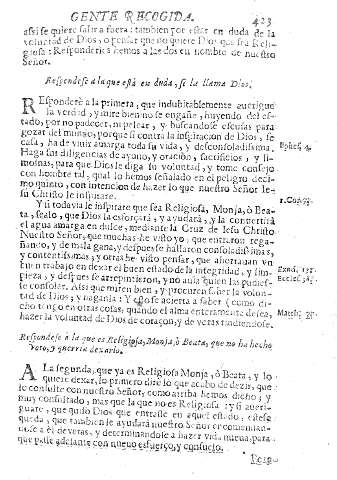 GENTE RECOGIDA. 423
assi se quiere salir a fuera: tambien por estar en duda de la
voluntad de Dios, o pensar que no quiere Dios que sea Reli-
giosa: Responderè a hemos a las dos en nombre de nuestro
Señor.
Respondese a la que està en duda, si la llama Dios.
REsponderè a la primera, que indubitablemente averigue
la verdad, y mire bien no se engañe, huyendo del es-
tado, por no padecer, ni pelear, y buscandose escusas para
gozar del mundo, porque si contra la inspiracion de Dios, se
casa, ha de vivir amarga toda su vida, y desconsoladissima. Ephes. 4.
Haga sus diligencias de ayuno, y oracion, sacrificios, y li-
mosnas, para que Dios le diga su voluntad, y tome consejo
con hombre tal, qual lo hemos señalado en el peligro deci-
mo quinto, con intencion de hazer lo que nuestro Señor Je-
su Christo le inspirare.
Y si todavia le inspirare que sea Religiosa, Monja, ò Bea-
ta, sealo, que Dios la esforçarà, y ayudarà, y la convertirà
el agua amarga en dulce, mediante la Cruz de Jesu Christo
Nuestro Señor, que muchas he visto yo, que entraron rega-
ñando, y de mala gana, y despues se hallaron consoladissimas,
y contentissimas; y otras he visto pensar, que
buen trabajo en dexar el buen estado de la integridad, y lim- Exod. 15.
pieza, y despues se arrepintieron, y no avia quien las pudies-
se consolar. Assi que miren bien, y procuren saber la volun-
tad de Dios; y haganla: Y esso se acierta a saber (como di-
cho tengo en otras cosas, quando el alma enteramente desea,
hazer la voluntad de Dios de coraçon, y de veras rindiendose.
Respondese a la que es Religiosa, Monja, ò Beata, que no ha hecho
voto, y querria dexarlo.
A La segunda, que ya es Religiosa Monja, ò Beata, y lo
quiere dexar, lo primero dirè lo que acabo de dezir, que
lo consulte con nuestro Señor, como arriba hemos dicho; y
muy consultado, mas que la que no es Religiosa: y si averi-
guare, que quiso Dios que entrasse en aquel estado, estese
queda, que tambien le ayudarà nuestro Señor encomendan-
dose a èl de veras, y determinandose a hazer vida nueva, para
que passe adelante con nuevo esfuerço, y consuelo.